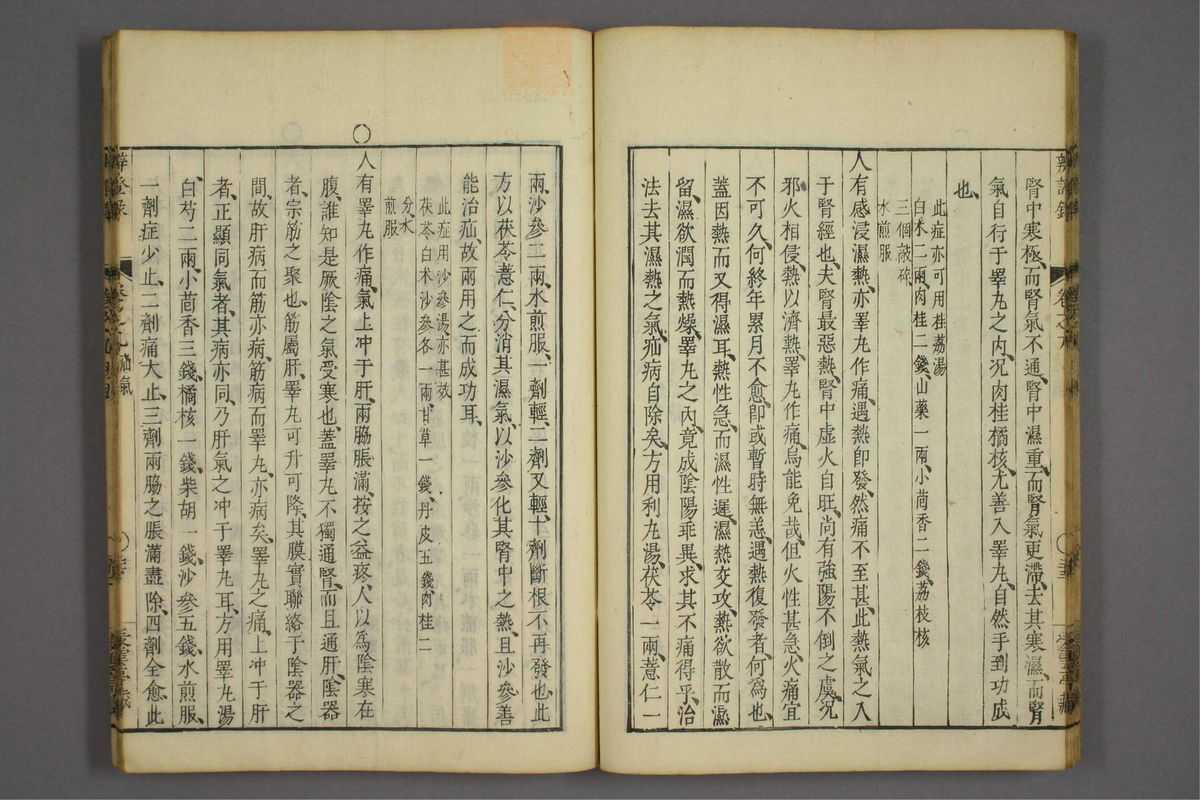 腎中寒極、而腎氣不通、腎中濕重、而腎氣更滯、去其寒濕、而腎
氣自行于睪丸之內、況肉桂橘核、尤善入睪丸、自然手到功成
也、
此症亦可用桂荔湯
白朮二兩、肉桂二錢、山藥一兩、小茴香二錢、荔枝核
三個敲碎
水煎服
人有感浸濕熱、亦睪丸作痛、遇熱卽發、然痛不至甚、此熱氣之入
于腎經也、夫腎最惡熱、腎中虛火自旺、尚有強陽不倒之虞、況
邪火相侵、熱以濟熱、睪丸作痛、烏能免哉、但火性甚急、火痛宜
不可久、何終年累月不愈、卽或暫時無恙、遇熱復發者、何爲也、
蓋因熱而又得濕耳、熱性急、而濕性遲、濕熱交攻、熱欲散而濕
留、濕欲潤而熱燥、睪丸之內、竟成陰陽乖異、求其不痛得乎、治
法去其濕熱之氣、疝病自除矣、方用利丸湯、茯苓一兩、薏仁一
兩、沙參二兩、水煎服、一劑輕、二劑又輕、十劑斷根不再發也、此
方以茯苓薏仁、分消其濕氣、以沙參化其腎中之熱、且沙參善
能治疝、故兩用之而成功耳、
此症用沙參湯亦甚效
茯苓白朮沙參各一兩、甘草一錢、丹皮五錢、肉桂二
分、水
煎服
○人有睪丸作痛、氣上冲于肝、兩脇脹滿、按之益疼、人以爲陰寒在
腹、誰知是厥陰之氣受寒也、蓋睪丸不獨通腎、而且通肝、陰器
者、宗筋之聚也、筋屬肝、睪丸可升可降、其膜實聯絡于陰器之
間、故肝病而筋亦病、筋病而睪丸亦病矣、睪丸之痛、上冲于肝
者、正顯同氣者、其病亦同、乃肝氣之冲于睪丸耳、方用睪丸湯
白芍二兩、小茴香三錢、橘核一錢、柴胡一錢、沙參五錢、水煎服、
一劑症少止、二劑痛大止、三劑兩脇之脹滿盡除、四劑全愈、此